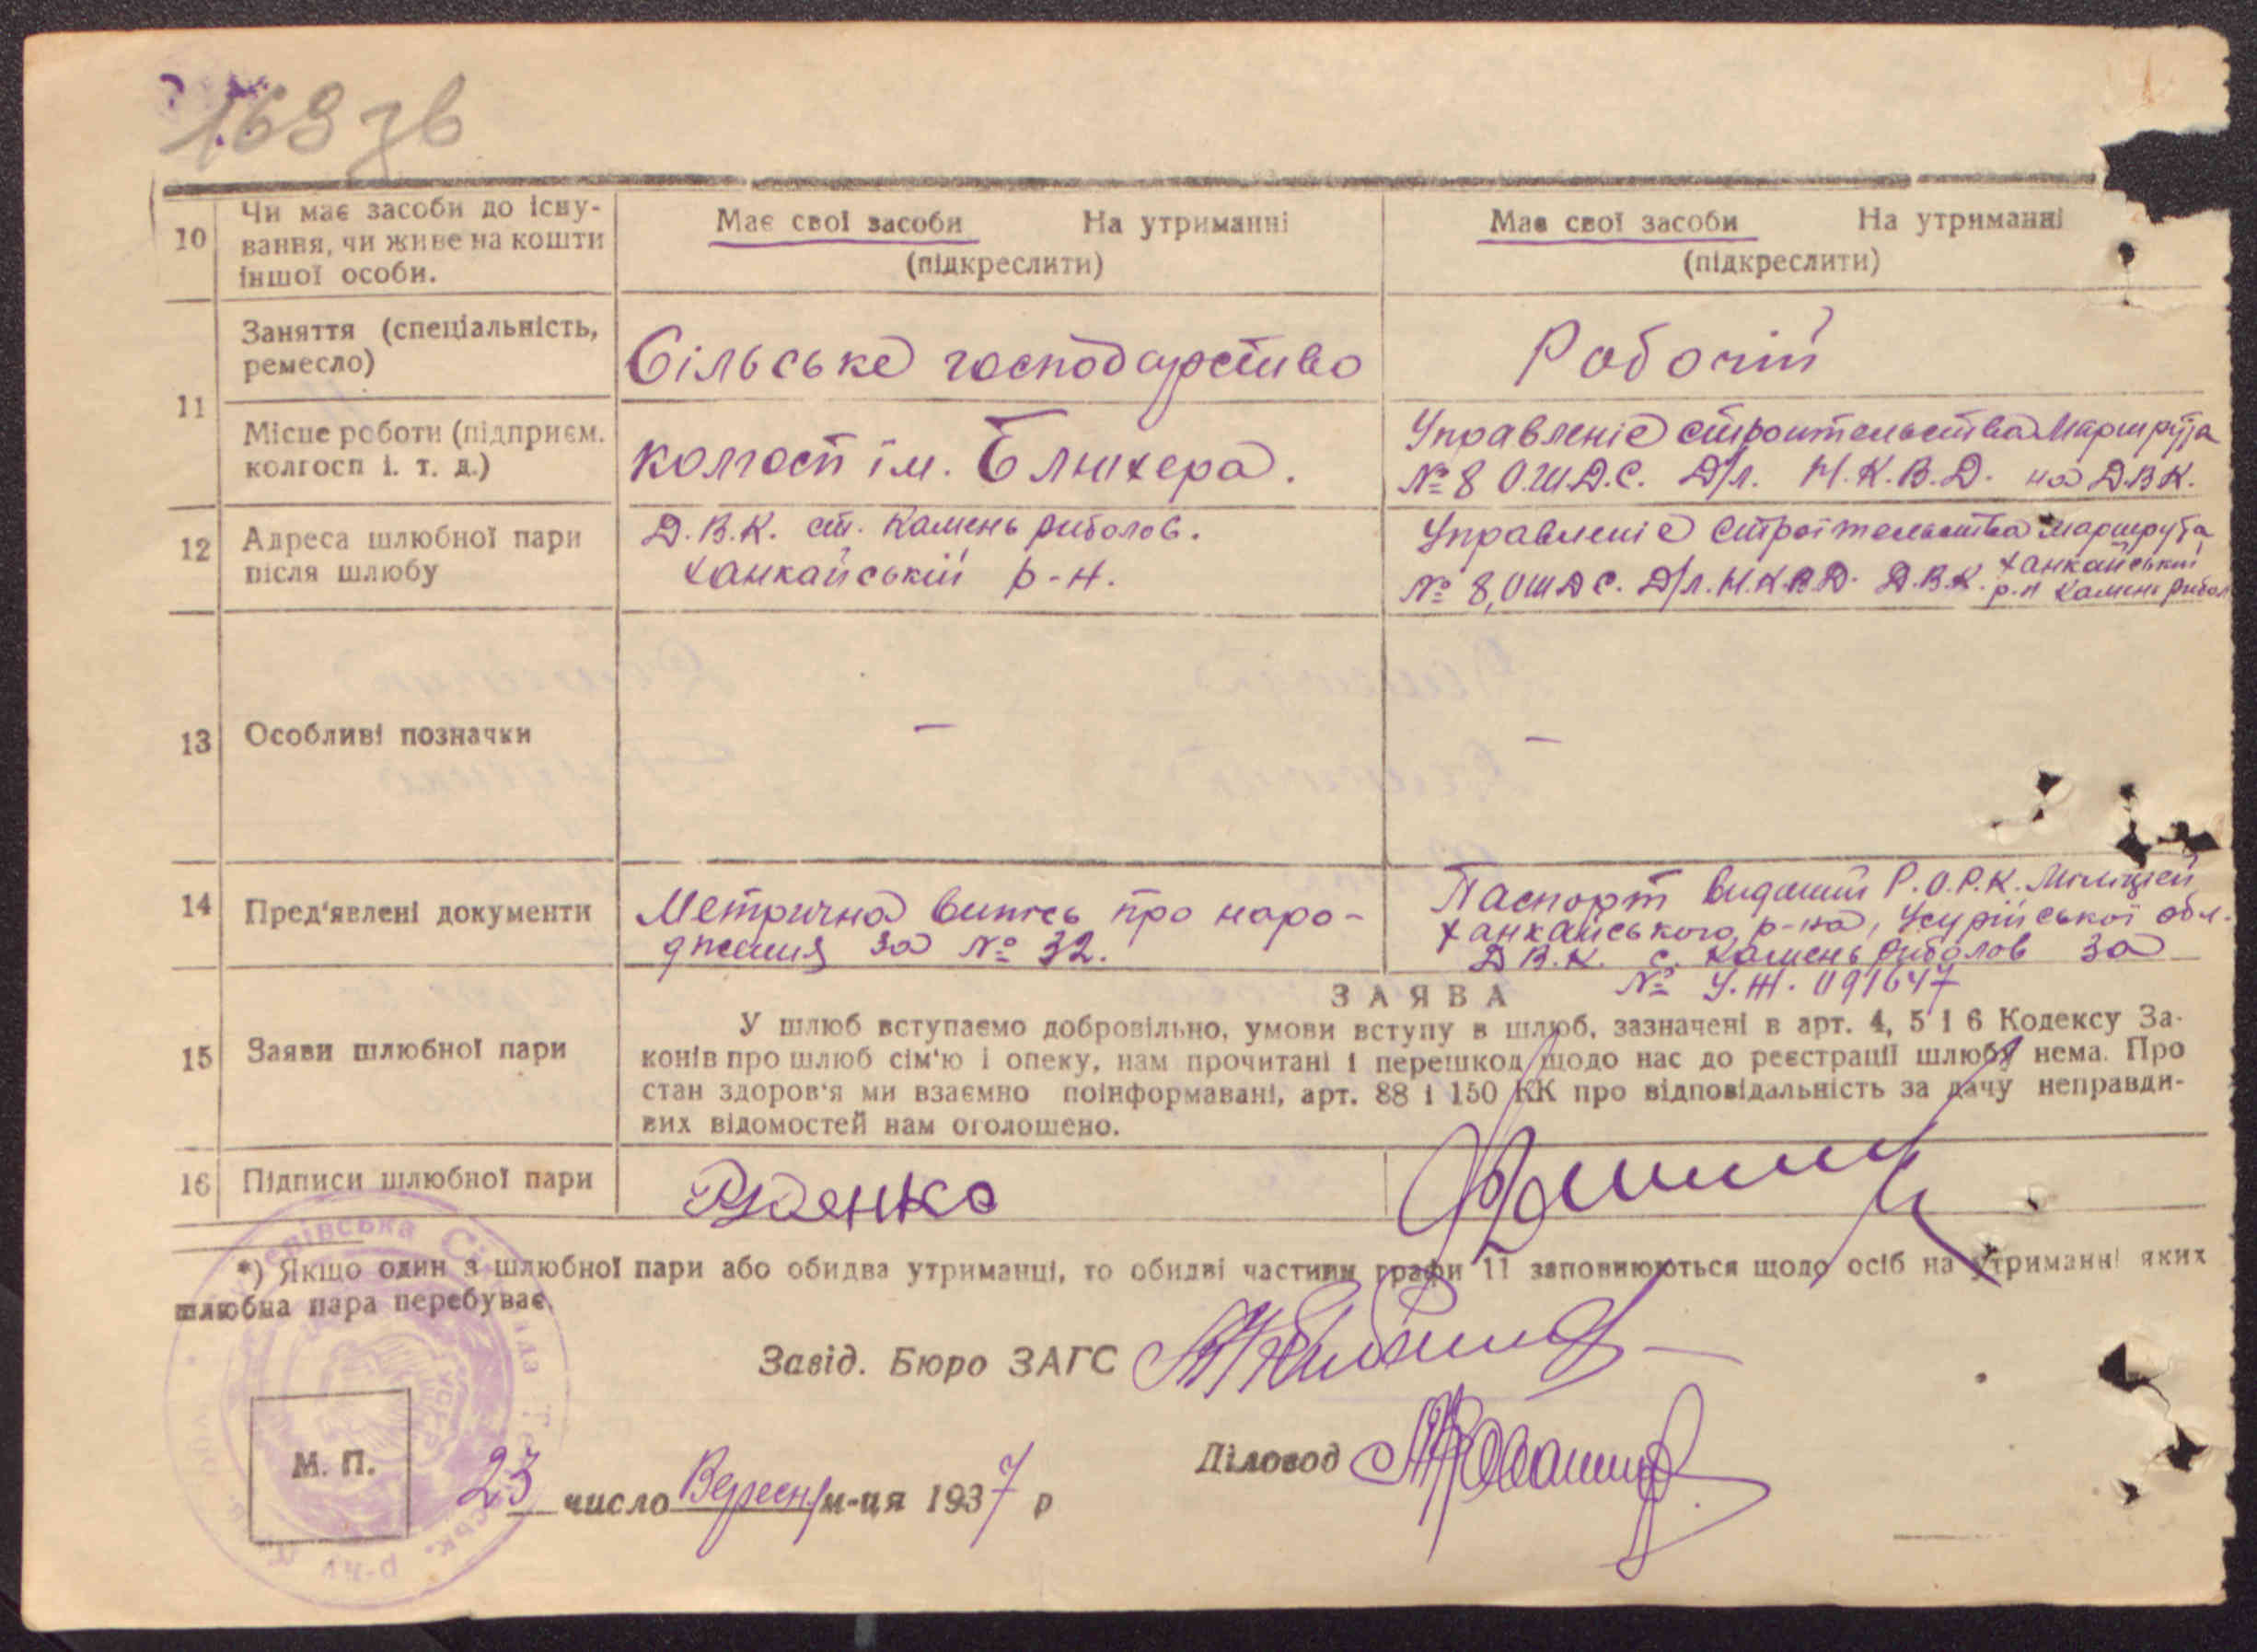 168 зв
10 Чи має засоби до існу-
вання, чи живе на кошти
іншої особи.
Має свої засоби На утриманні
(підкреслити)
Має свої засоби На утриманні
(підкреслити)
11
Заняття (спеціальність,
ремесло)
Сільське господарство
Робочій
Місце роботи (підприєм.
колгосп і. т. д.)
колгосп їм. Блюхера.
Управленіє строительства Маршрута
№ 8 О.Ш.Д.С. Д/л. Н.К.В.Д. на Д.В.К.
12 Адреса шлюбної пари
після шлюбу
Д.В.К. ст. Камень риболов.
Ханкайській р-н.
Управленіє строітельства маршрута
№ 8, ОШДС. Д/л. Н.К.В.Д. Д.В.К. Ханкайський
р.н Камень Рибол
13 Особливі позначки
–
–
14 Пред'явлені документи
Метрична випись про наро-
дження за № 32.
Паспорт виданий Р.О.Р.К. Міліцией
Ханкайського р-на, Усурійської обл.
Д.В.К. с. Камень риболов за
№ У.Ж. 091647
15 Заяви шлюбної пари
ЗАЯВА
У шлюб вступаємо добровільно, умови вступу в шлюб, зазначені в арт. 4, 5 і 6 Кодексу За-
конів про шлюб сім'ю і опеку, нам прочитані і перешкод щодо нас до реєстрації шлюбу нема. Про
стан здоров'я ми взаємно поінформавані, арт. 88 і 150 КК про відповідальність за дачу неправди-
вих відомостей нам оголошено.
16 Підписи шлюбної пари
*) Якщо один з шлюбної пари або обидва утриманці, то обидві частини графи 11 заповнюються щодо осіб на утриманні яких
шлюбна пара перебуває.
Завід. Бюро ЗАГС
Діловод
М. П.
23 число Вересн. м-ця 1937 р